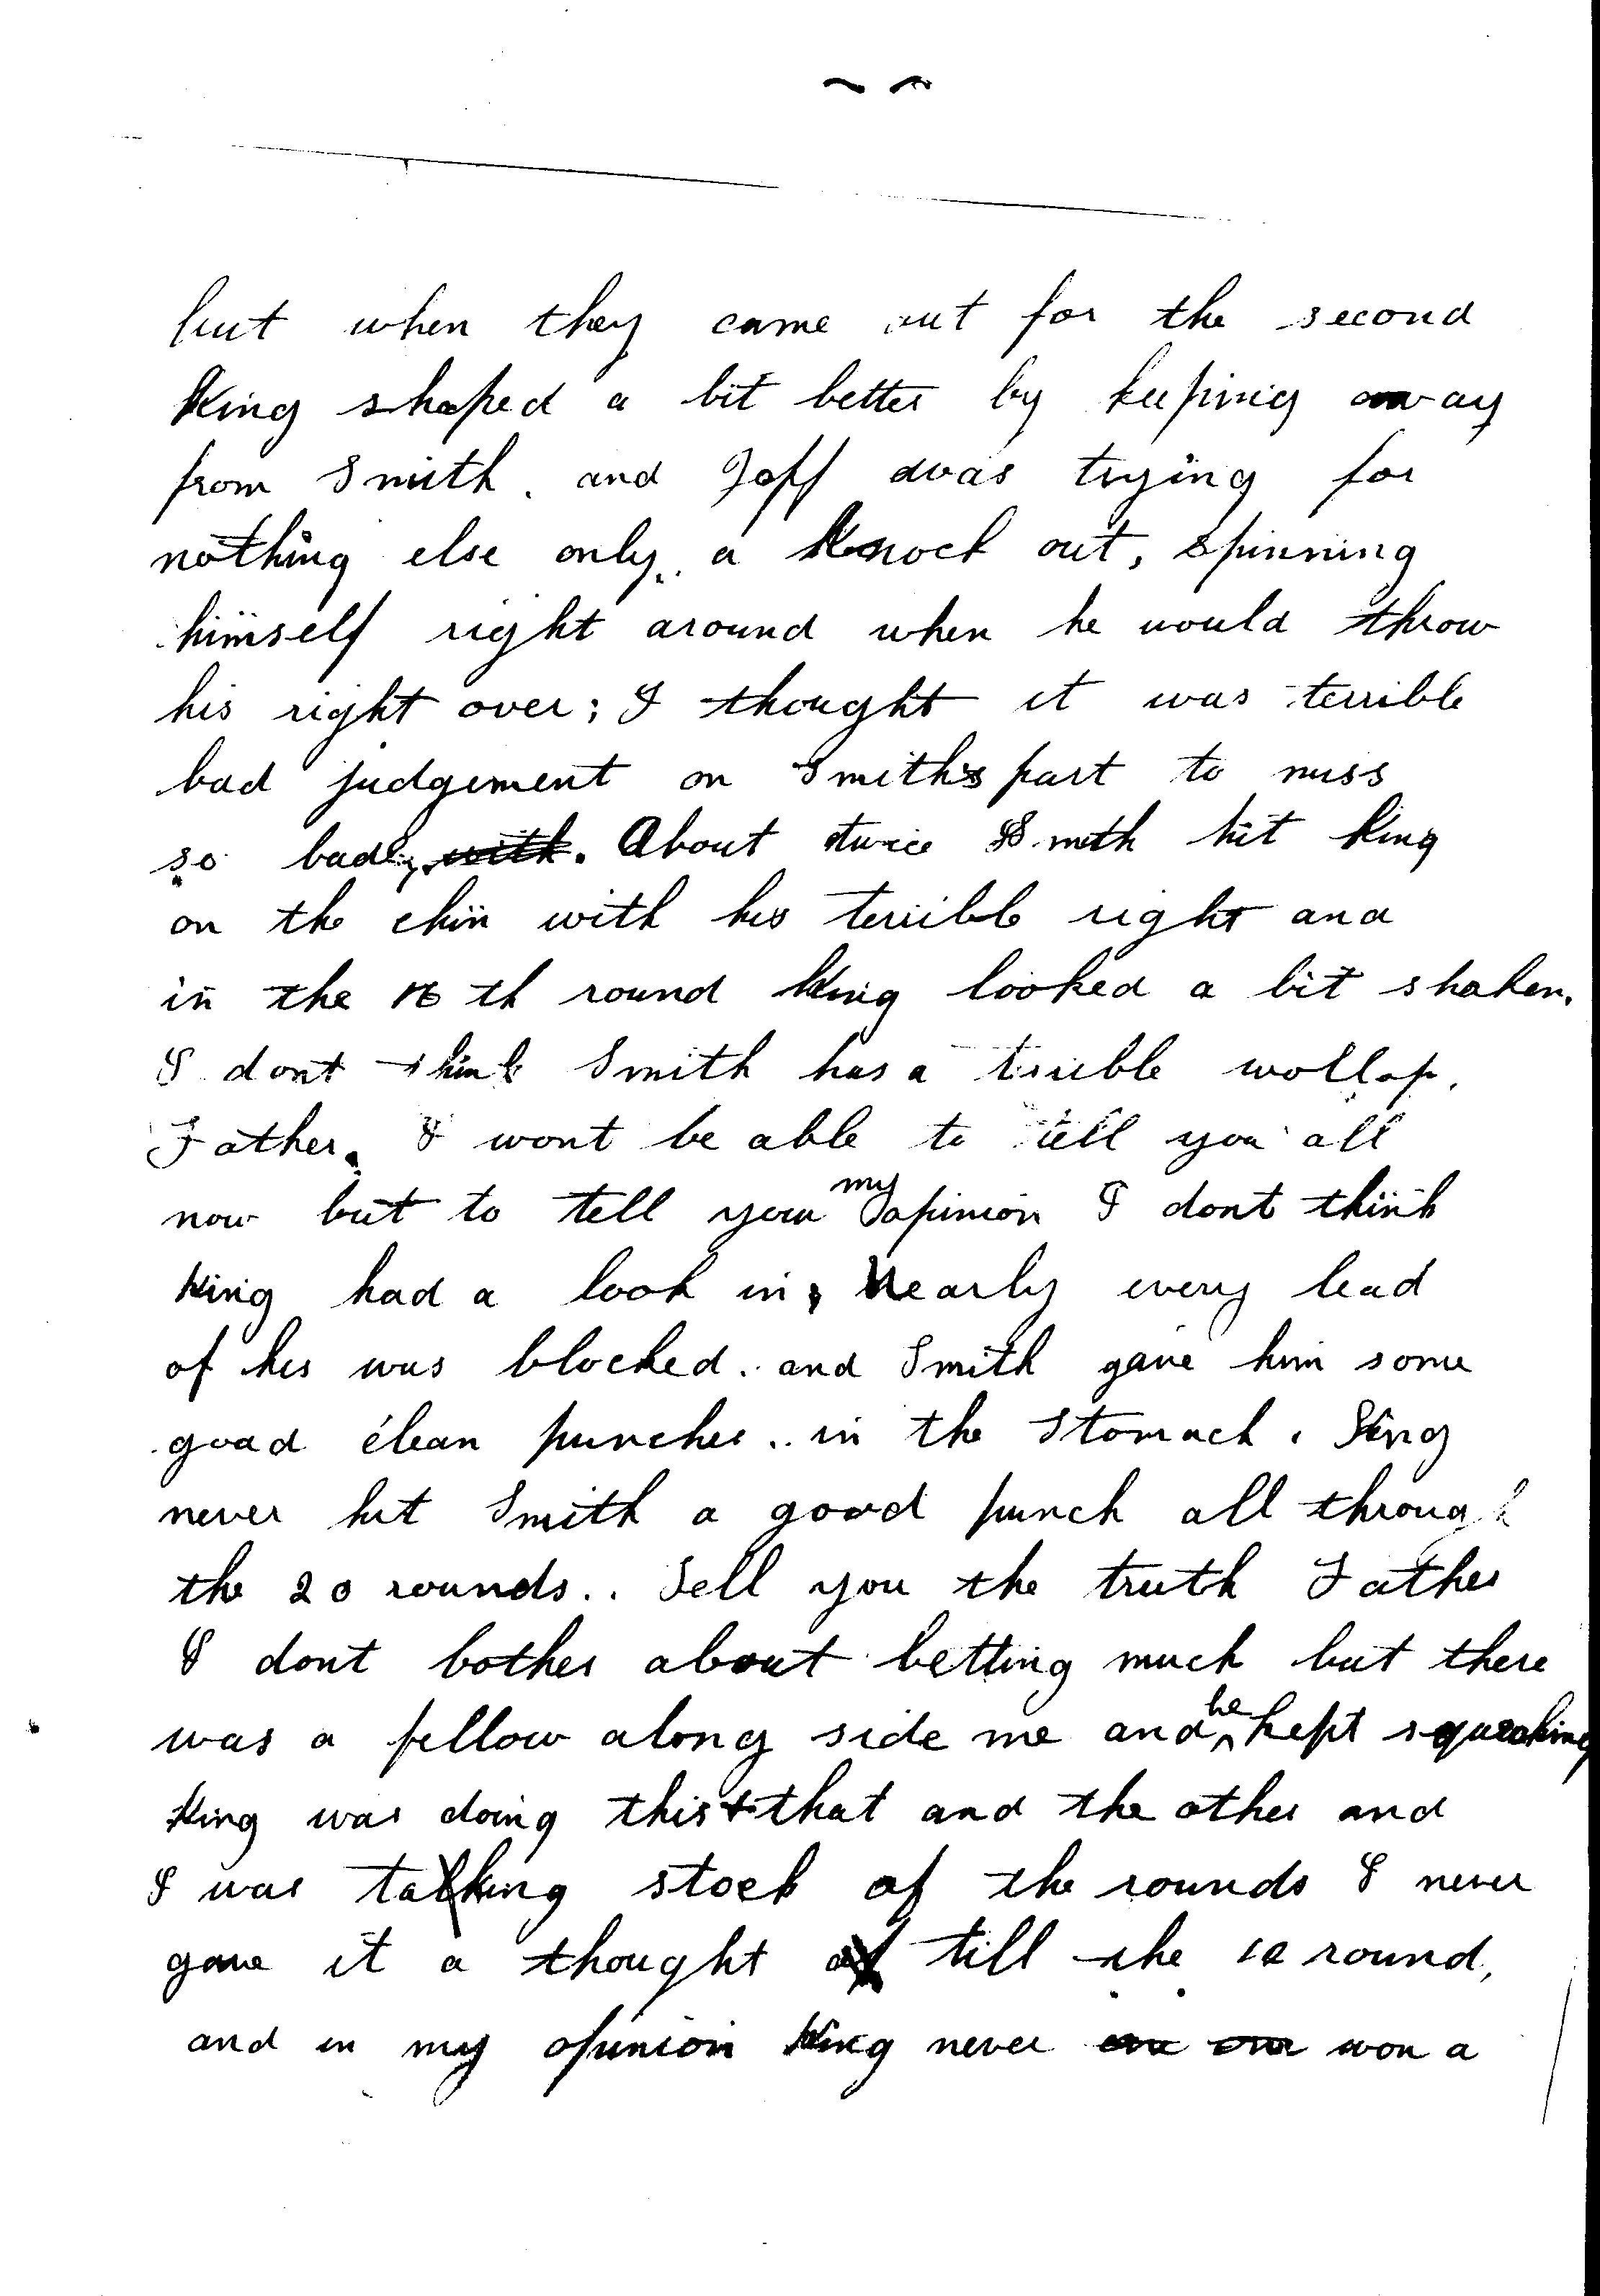 but when they came out for the second
King shaped a bit better by keeping away
from Smith. and Jeff was trying for
nothing else only a Knock out, spinning
himself right around when he would throw
his right over; I thought it was terrible
bad judgement on Smiths part to miss
so badly with. About twice Smith hit King
on the chin with his terrible right and
in the 16 th round King looked a bit shaken.
I dont think Smith has a terrible wollop.
Father. I wont be able to tell you all
now but to tell you my opinion I dont think
King had a look in, Nearly every lead
of his was blocked. and Smith gave him some
good clean punches.. in the Stomach. King
never hit Smith a good punch all through
the 20 rounds.. Tell you the truth Father
I dont bother about betting much but there
was a fellow along side me and he kept squeaking
King was doing this + that and the other and
I was taking stock of the rounds I never
gave it a thought of till the round,
and in my opinion King never won a